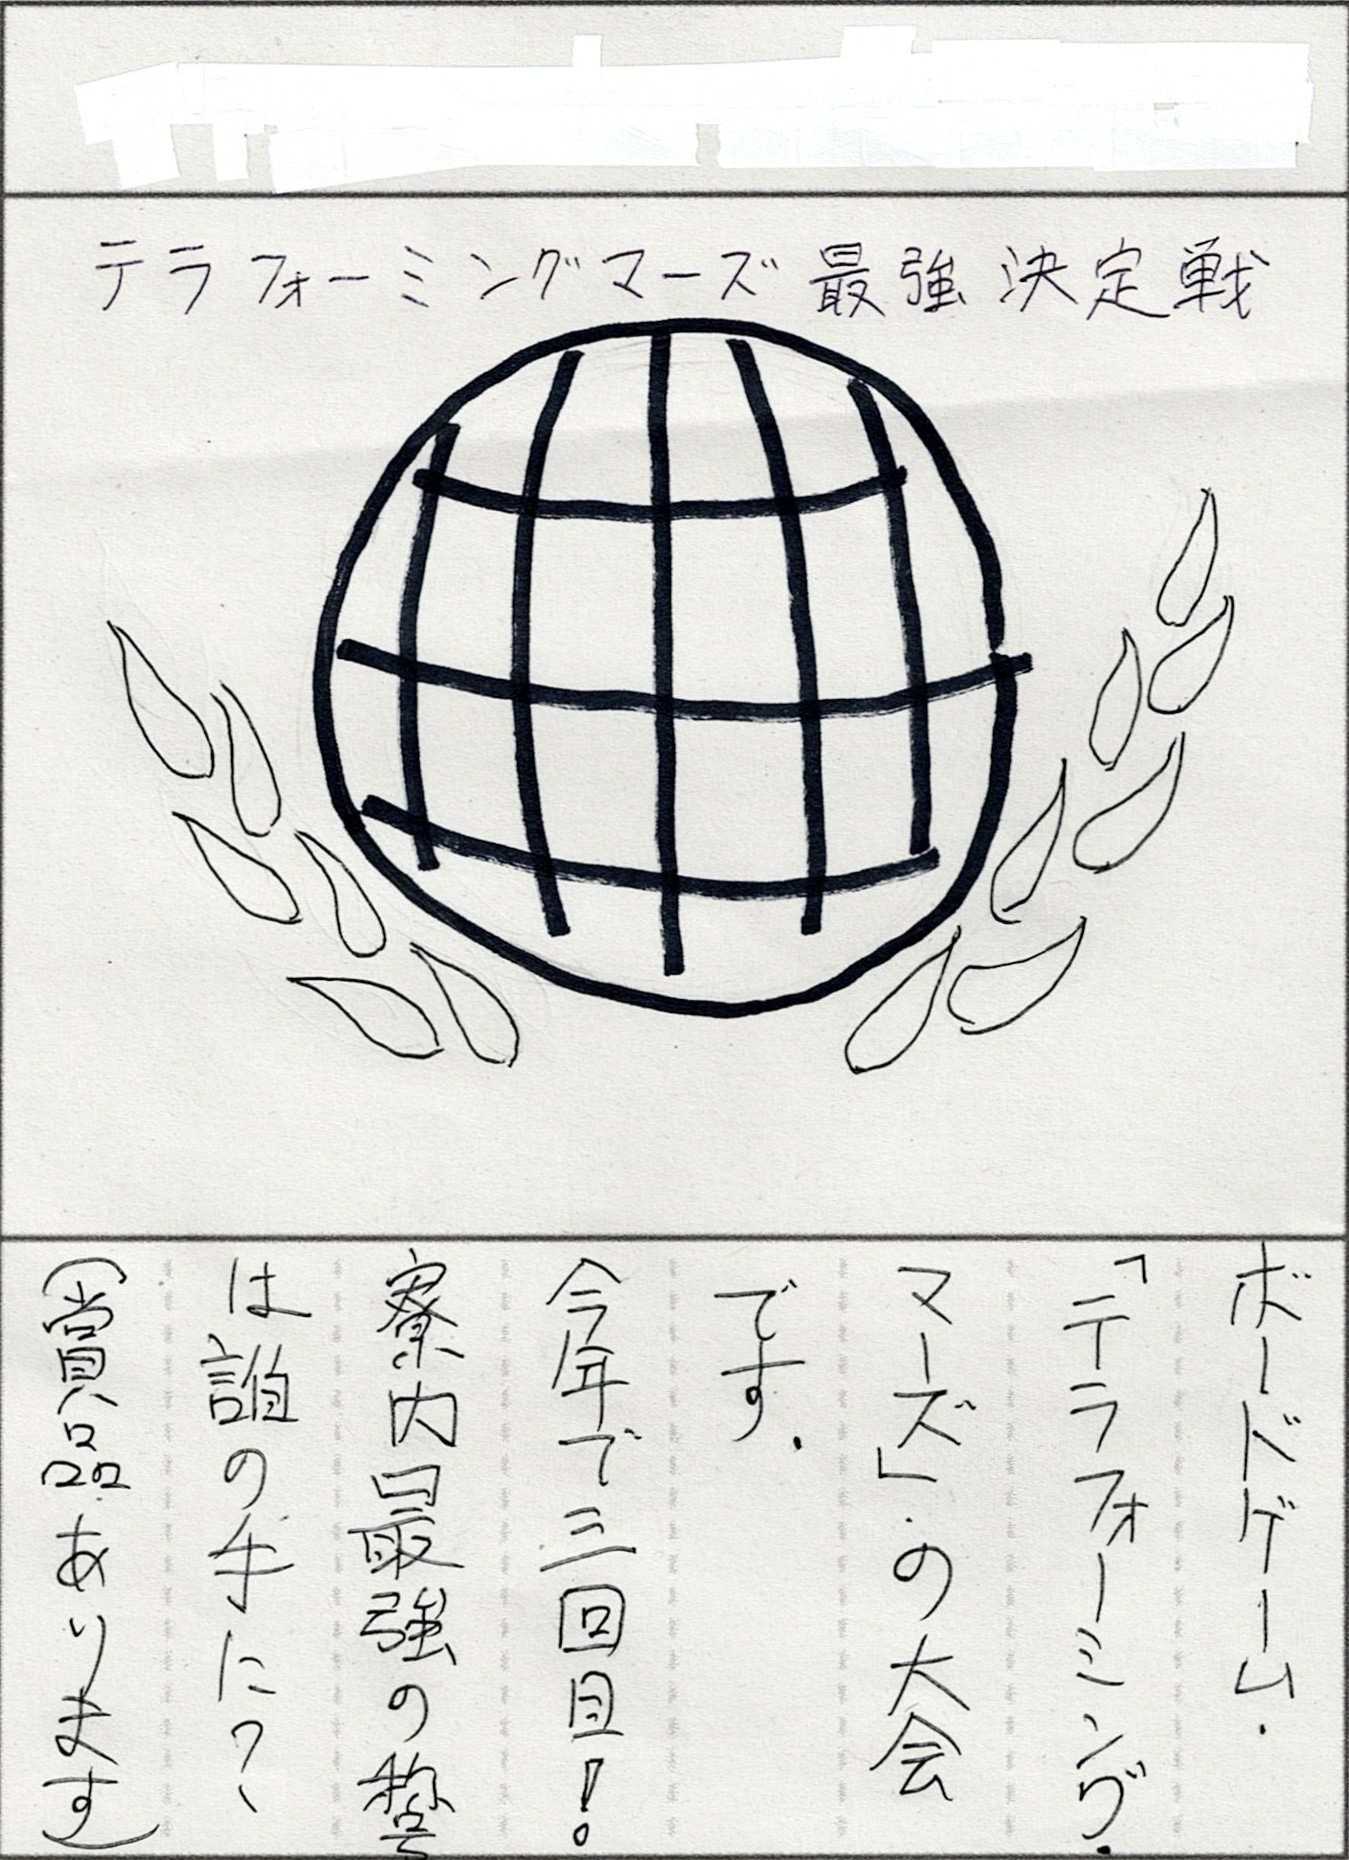 テラフォーミングマーズ最強決定戦
ボードゲーム
「テラフォーミング
マーズ」の大会
です.
今年で三回目!
寮内最強の
は誰の手に?
(賞品あります)